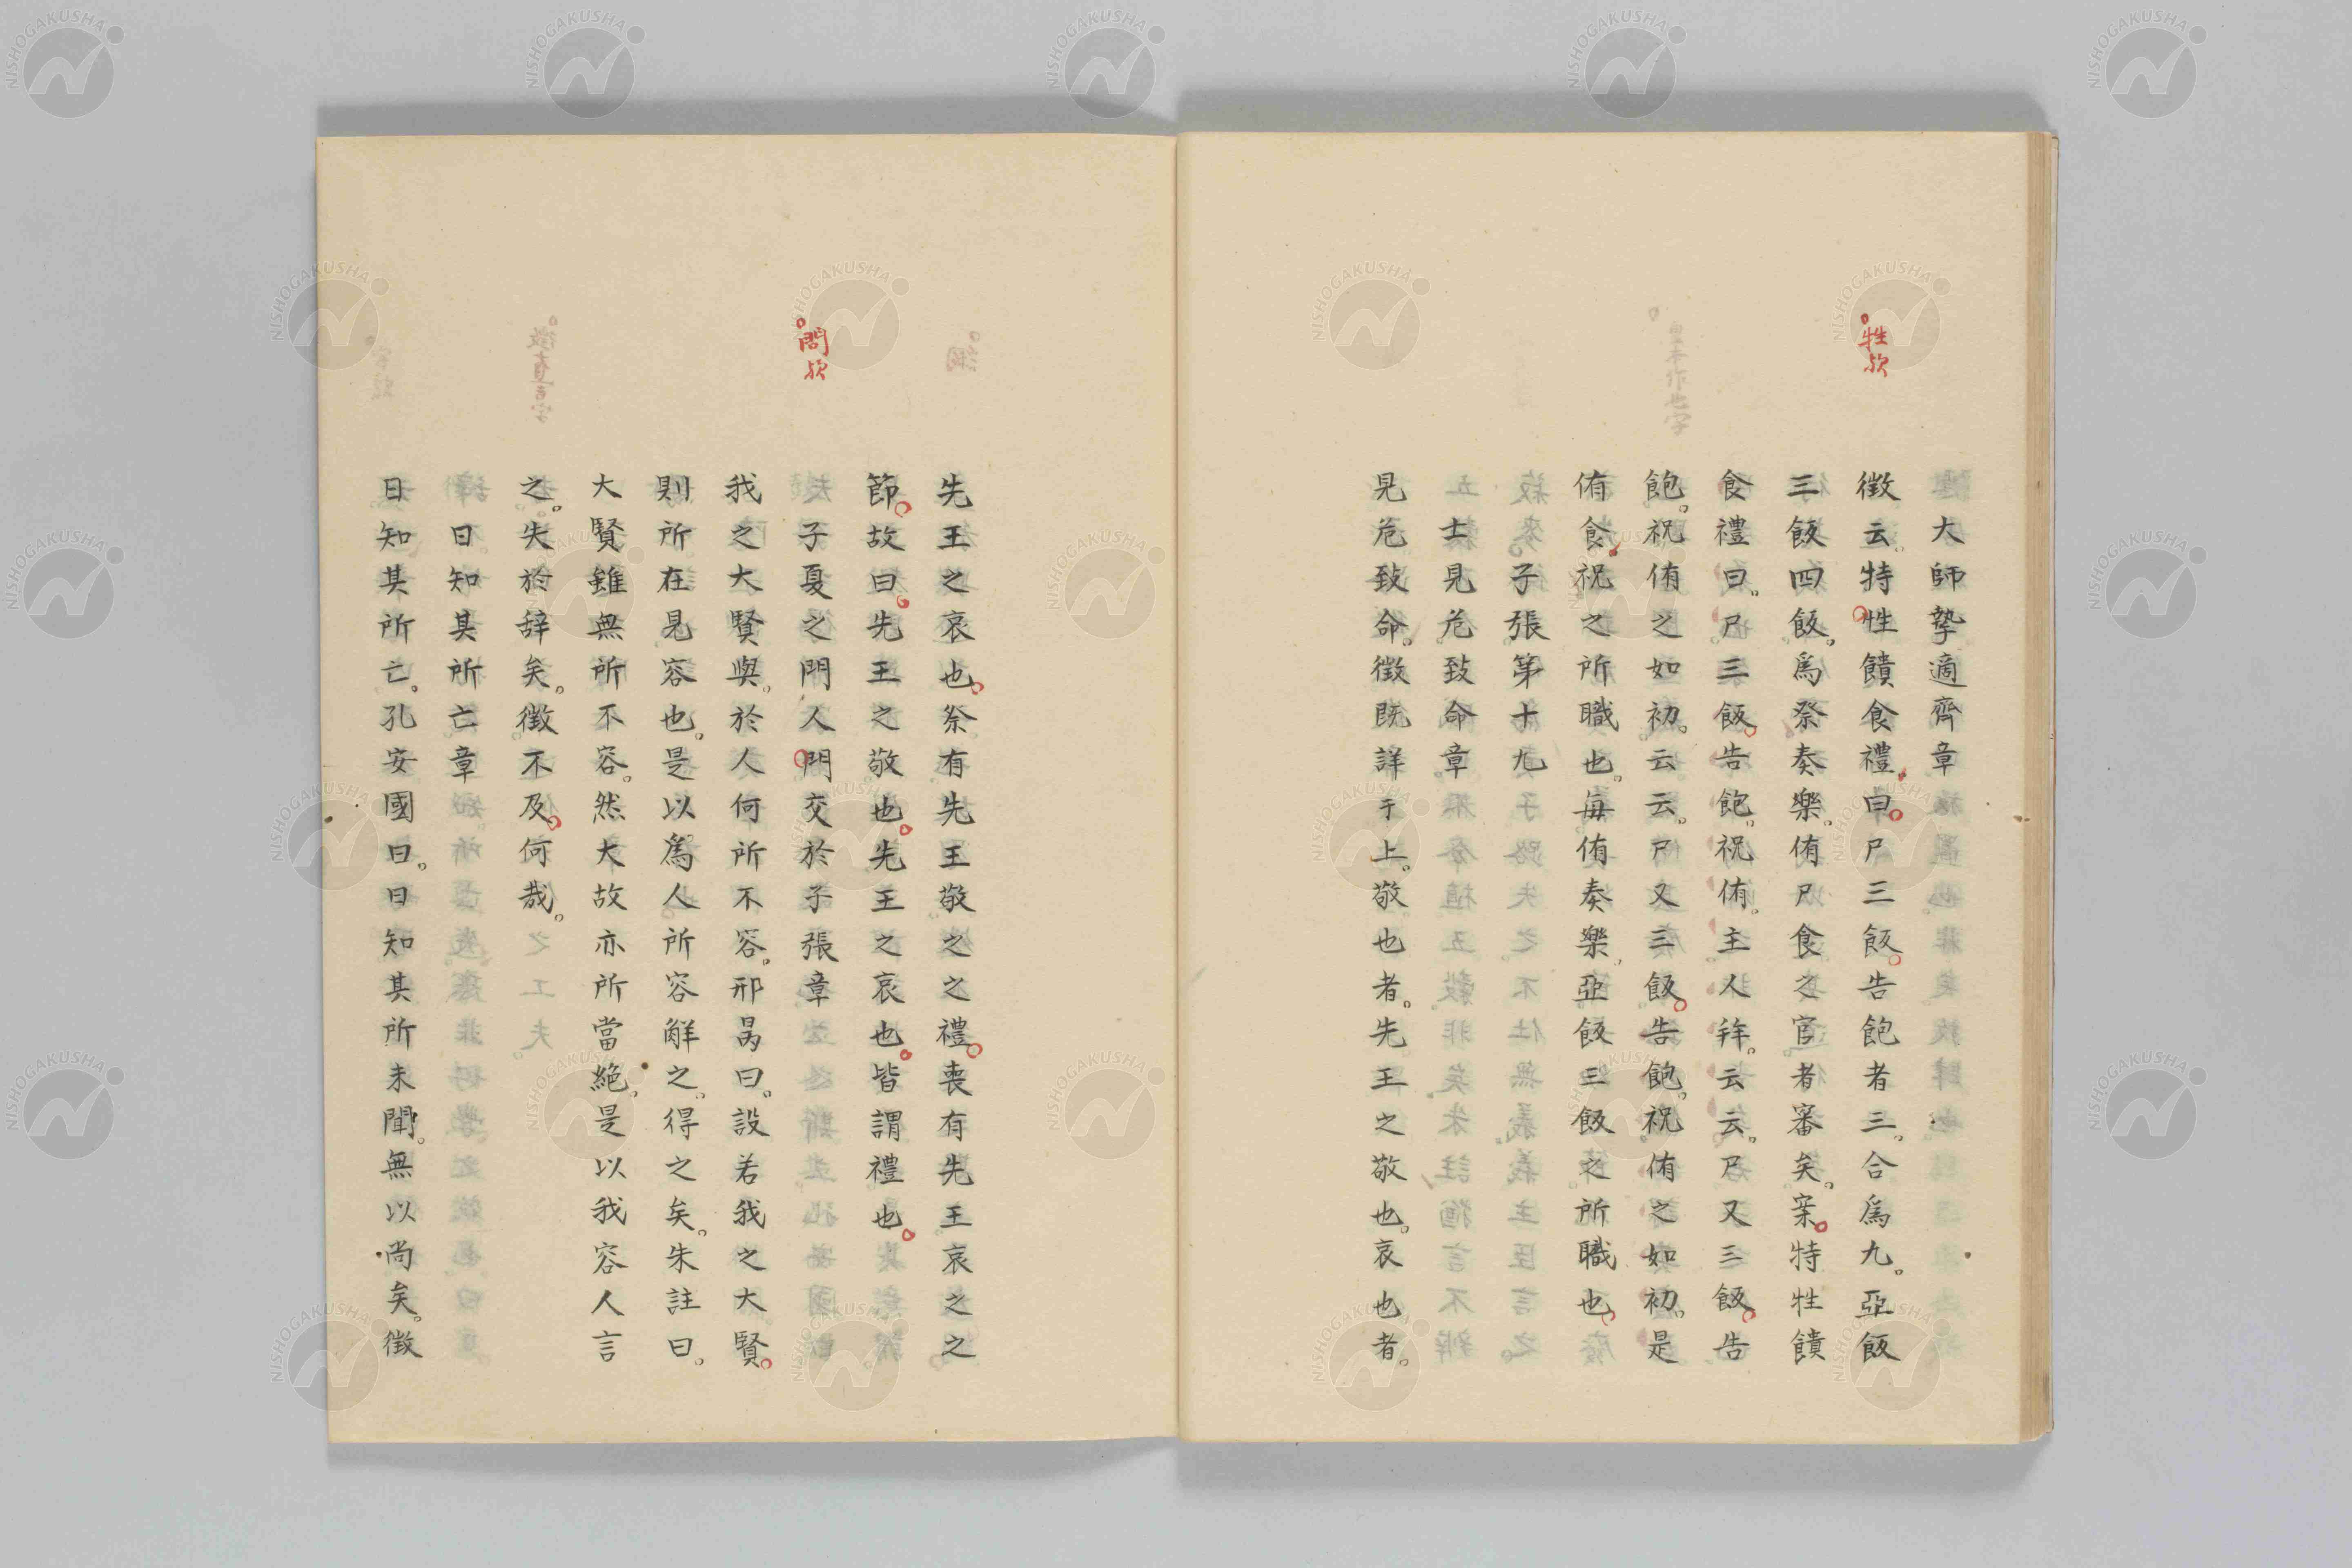 牲欤
大師摯適齊章
徴云。特性饋食禮。曰。尸三飯。告飽者三。合爲九。亞飯
三飯四飯。爲祭奏樂。侑尸食之官者審矣。案。特牲饋
食禮曰。尸三飯。告飽。祝侑。主人拜。云云。尸又三飯。告
飽。祝侑之如初。云云。尸又三飯。告飽。祝侑之如初。是
侑食。祝之所職也。每侑奏樂。亞飯三飯之所職也。
子張第十九
士見危致命章
見危致命。徴既詳于上。敬也者。先王之敬也。哀也者。
先王之哀也。祭有先王敬之之禮。喪有先王哀之之
節。故曰。先王之敬也。先王之哀也。皆謂禮也。
問欤
子夏之門人門交於子張章
我之大賢與。於人何所不容。邢昺曰。設若我之大賢。
則所在見容也。是以爲人所容解之。得之矣。朱註曰。
大賢雖無所不容。然大故亦所當絶。是以我容人言
之。失於辞矣。徴不及。何哉。
日知其所亡章
日知其所亡。孔安國曰。日知其所未聞。無以尚矣。徴
NISHOGAKUSHA